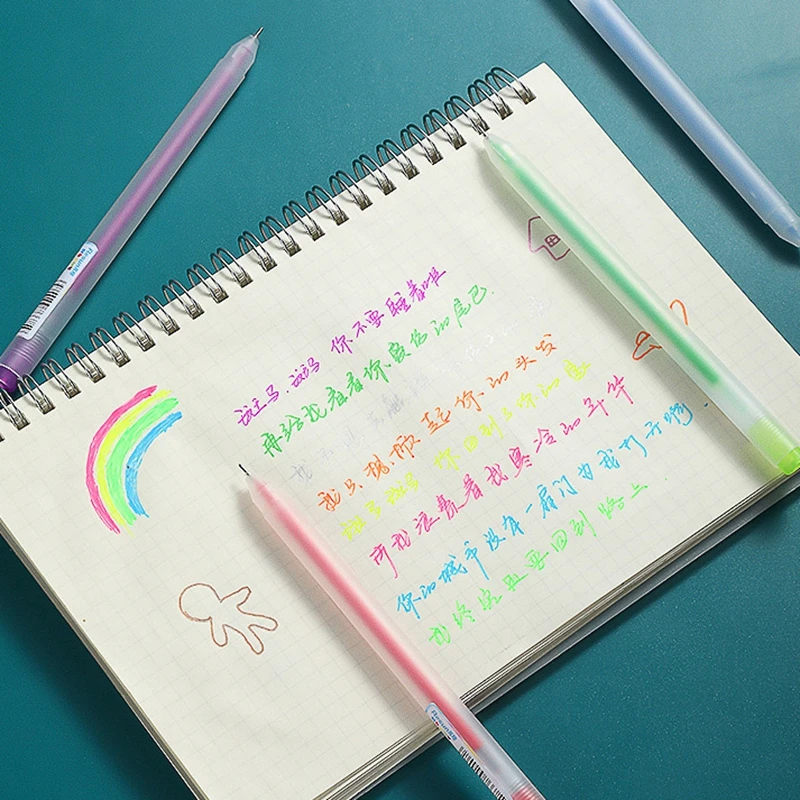 斑马.斑马 你不要睡着啦
再给我看看你受伤的尾巴.
我不想去触
我只想掀起你的头发
斑马斑马 你回到了你的家
可我浪费着我寒冷的年华
你的城市没有一扇门为我打开啊.
我终究还要回到路上